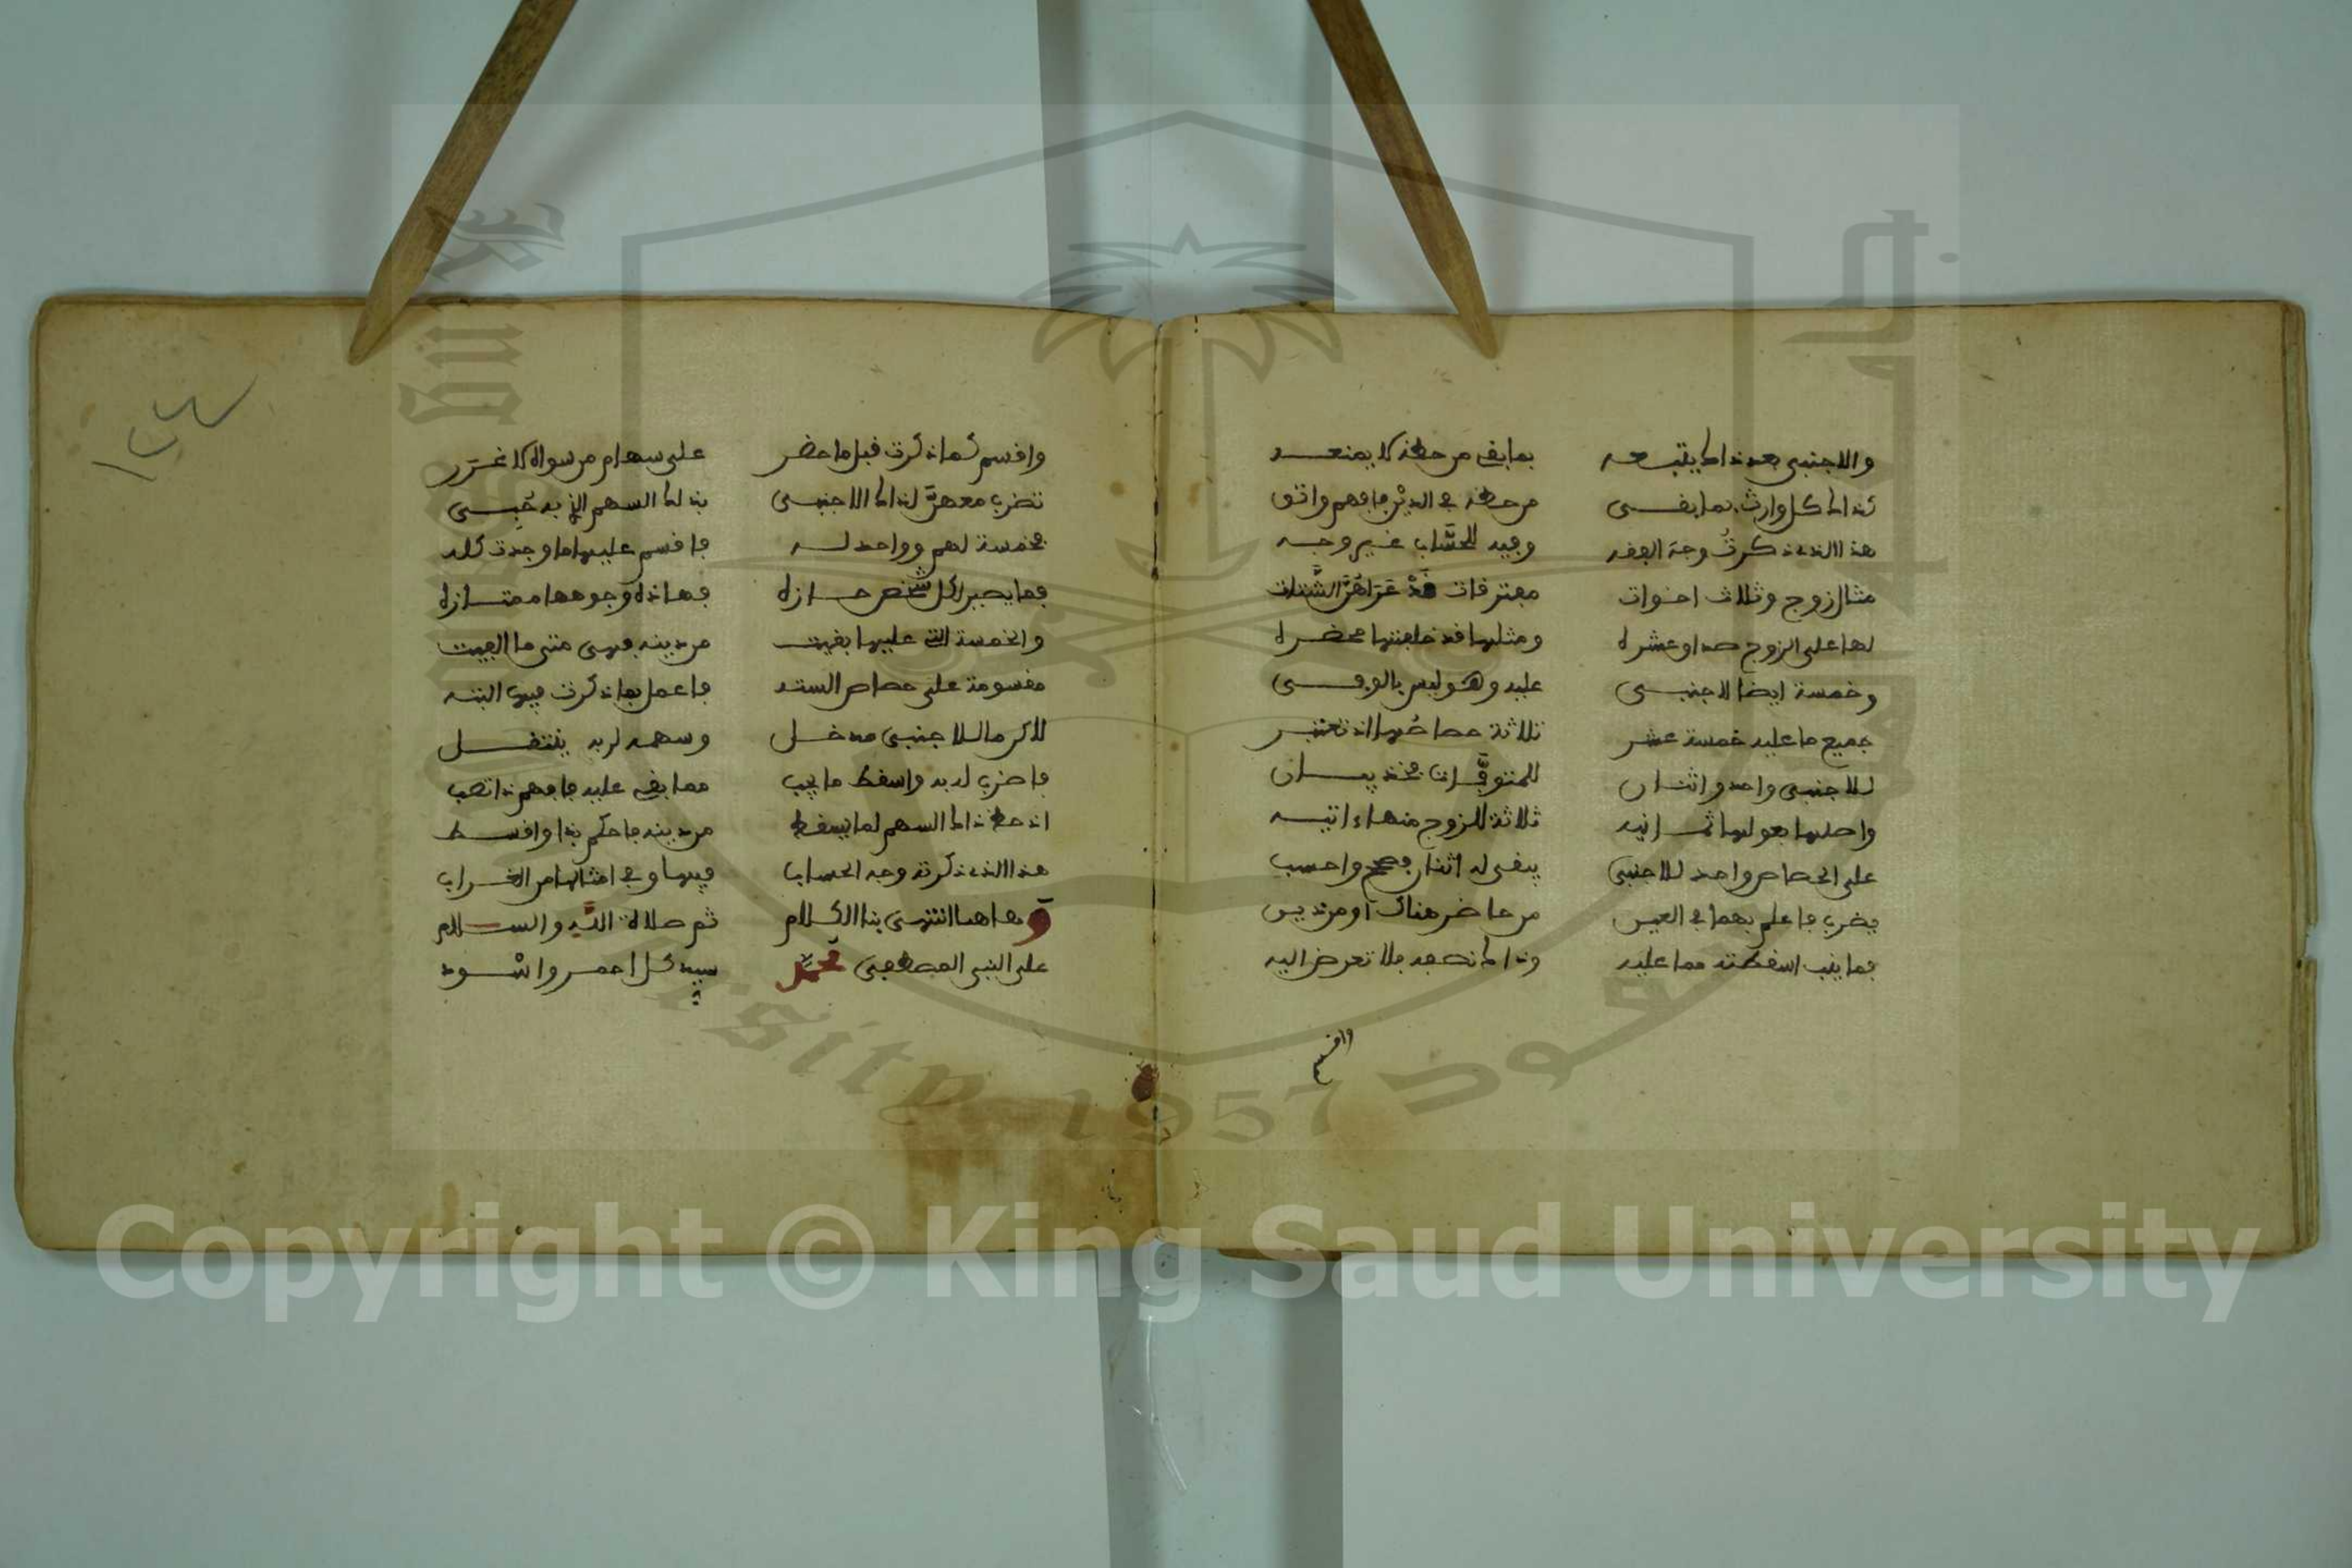 والاجنبي بعد ذاك يتبعه بما بقي من حظه لا يمنعه
كذاك كل وارث بما بقي من حظه في الدين فافهم واتق
هذا الذي ذكرت وجه الفقه وفيه للحساب غير وجه
مثال زوج وثلاث اخوات مفترقات قد عراهن الشتات
لها على الزوج صداق عشره ومثلها قد خلفتها محضره
وخمسة ايضا لاجنبي عليه وهو ليس بالوفي
جميع ما عليه خمسة عشر ثلاثة حصاصها اذ تعتبر
للاجنبي واحد واثنان للمتوفاة
واصلها بعولها ثمانيه ثلاثة للزوج منها ءاتيه
على الحصاص واحد للاجنبي يبقى له اثنان فصحح واحسب
يضرب فاعلم بهما في العين من حاضر هناك او من دين
فما ينب اسقطته مما عليه وذاك نصفه فلا تعرض اليه
واقسم
واقسم كما ذكرت قبل ما حضر على سهام من سواه لا غرر
تضرب معهن لذاك الاجنبي بذلك السهم الذي به حبي
فخمسة لهم وواحد له فاقسم عليها ما وجدت كله
فما يصير لكل شخص حازه فهاذه وجوهها ممتازه
والخمسة التي عليها بقيت من دينه فهي متى ما الفيت
مقسومة على حصاص السته فاعمل بما ذكرت فيها البته
لاكن ما للاجنبي مدخل وسهمه لربه ينتقل
فاضرب له به واسقط ما يجب مما بقي عليه فافهم ذا تصب
اذ حظ ذاك السهم لما يسقط من دينه فاحكم بذا واقسط
هذا الذي ذكرته وجه الحساب فيها وفي امثالها من الغراب
وهاهنا انتهى بنا الكلام ثم صلاة الله والسلام
على النبي المصطفى محمد سيد كل احمر واسود
١٢٤
Copyright © King Saud University
1957